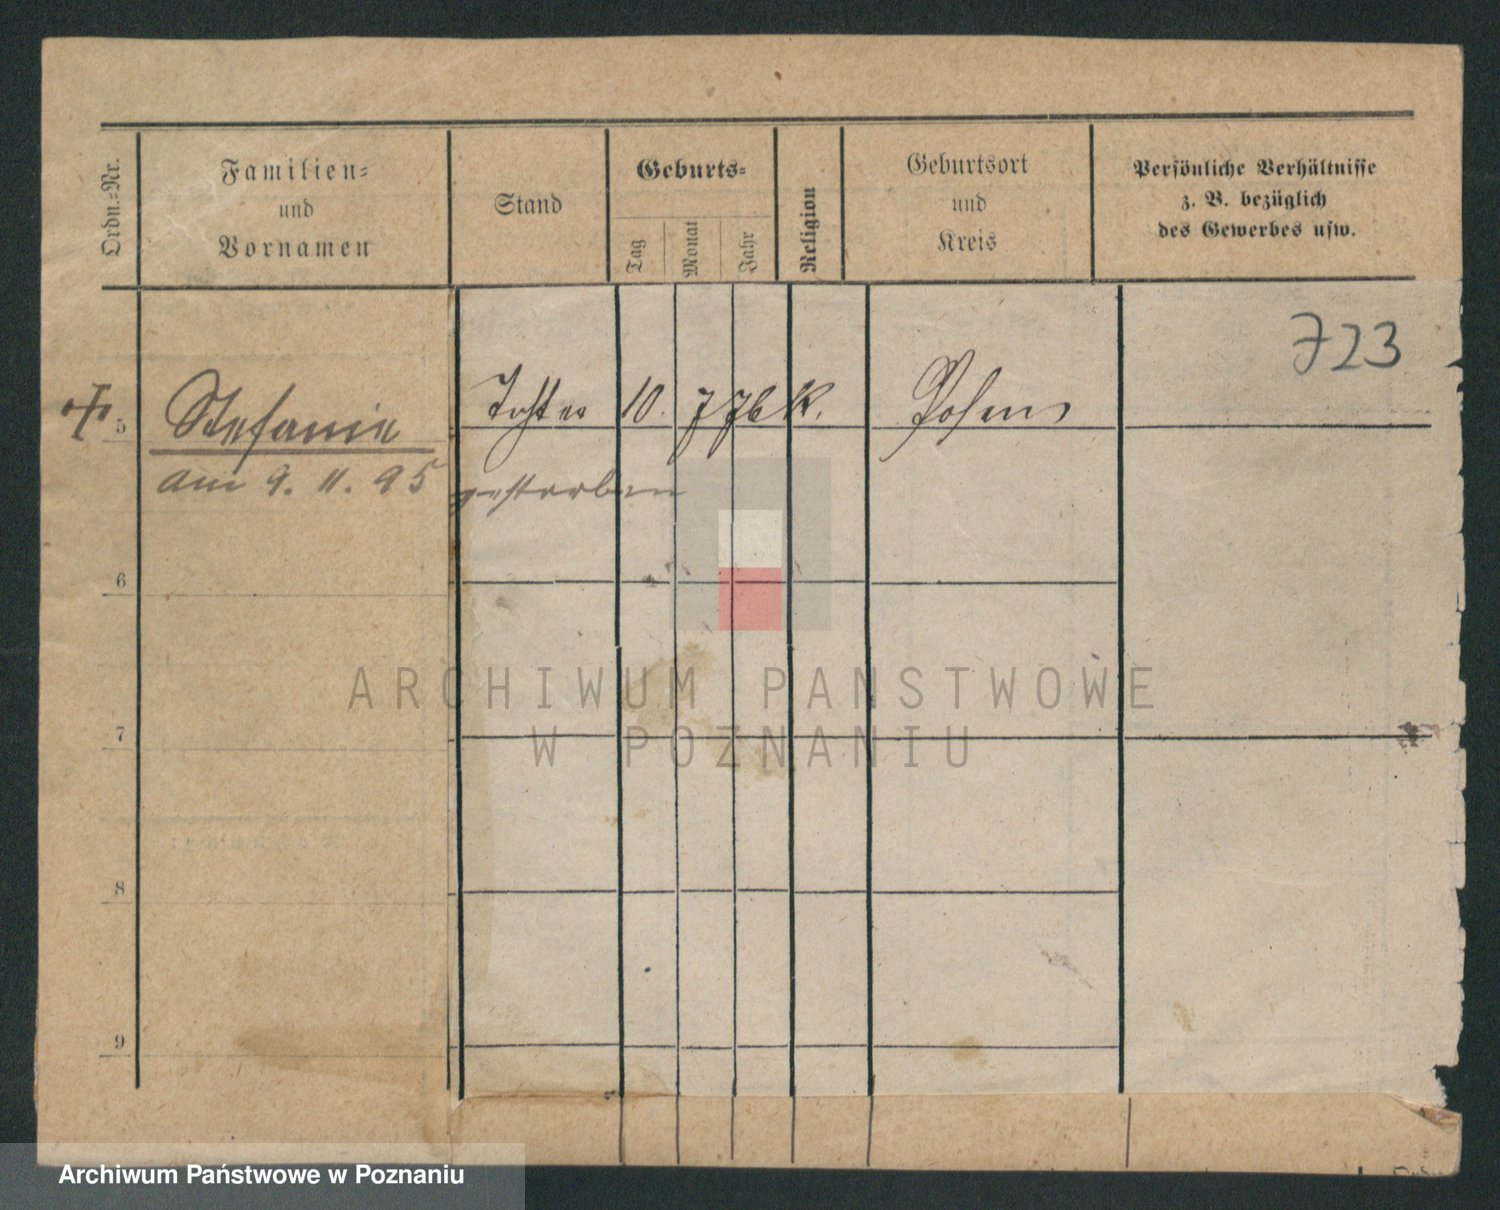 Ordn.-Nr.
Familien-
und
Vornamen
Stand
Geburts-
Tag
Monat
Jahr
Religion
Geburtsort
und
Kreis
Persönliche Verhältnisse
z. B. bezüglich
des Gewerbes usw.
723
5 Stefanie Tochter 10. 7 76 k. Posen
am 9. 11. 95 gestorben
6
7
8
9
ARCHIWUM PAŃSTWOWE
W POZNANIU
Archiwum Państwowe w Poznaniu